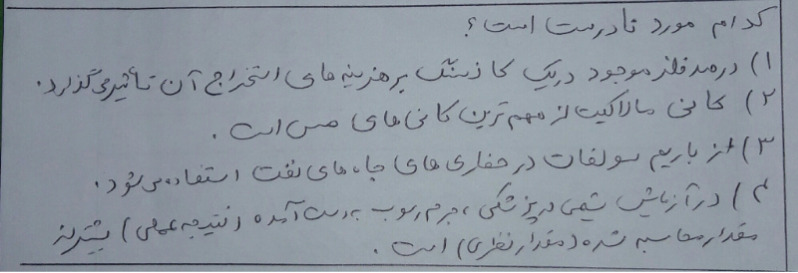 کدام مورد نادرست است؟
۱) درصد فلز موجود در یک کانسنگ بر هزینه های استخراج آن تأثیر می گذارد.
۲) کانی مالاکیت از مهم ترین کانی های مس است.
۳) از باریم سولفات در حفاری های چاه های نفت استفاده می شود.
۴) در آزمایش شیمی در پزشکی، جرم رسوب به دست آمده (نتیجه عملی) بیشتر از
مقدار محاسبه شده (مقدار نظری) است.